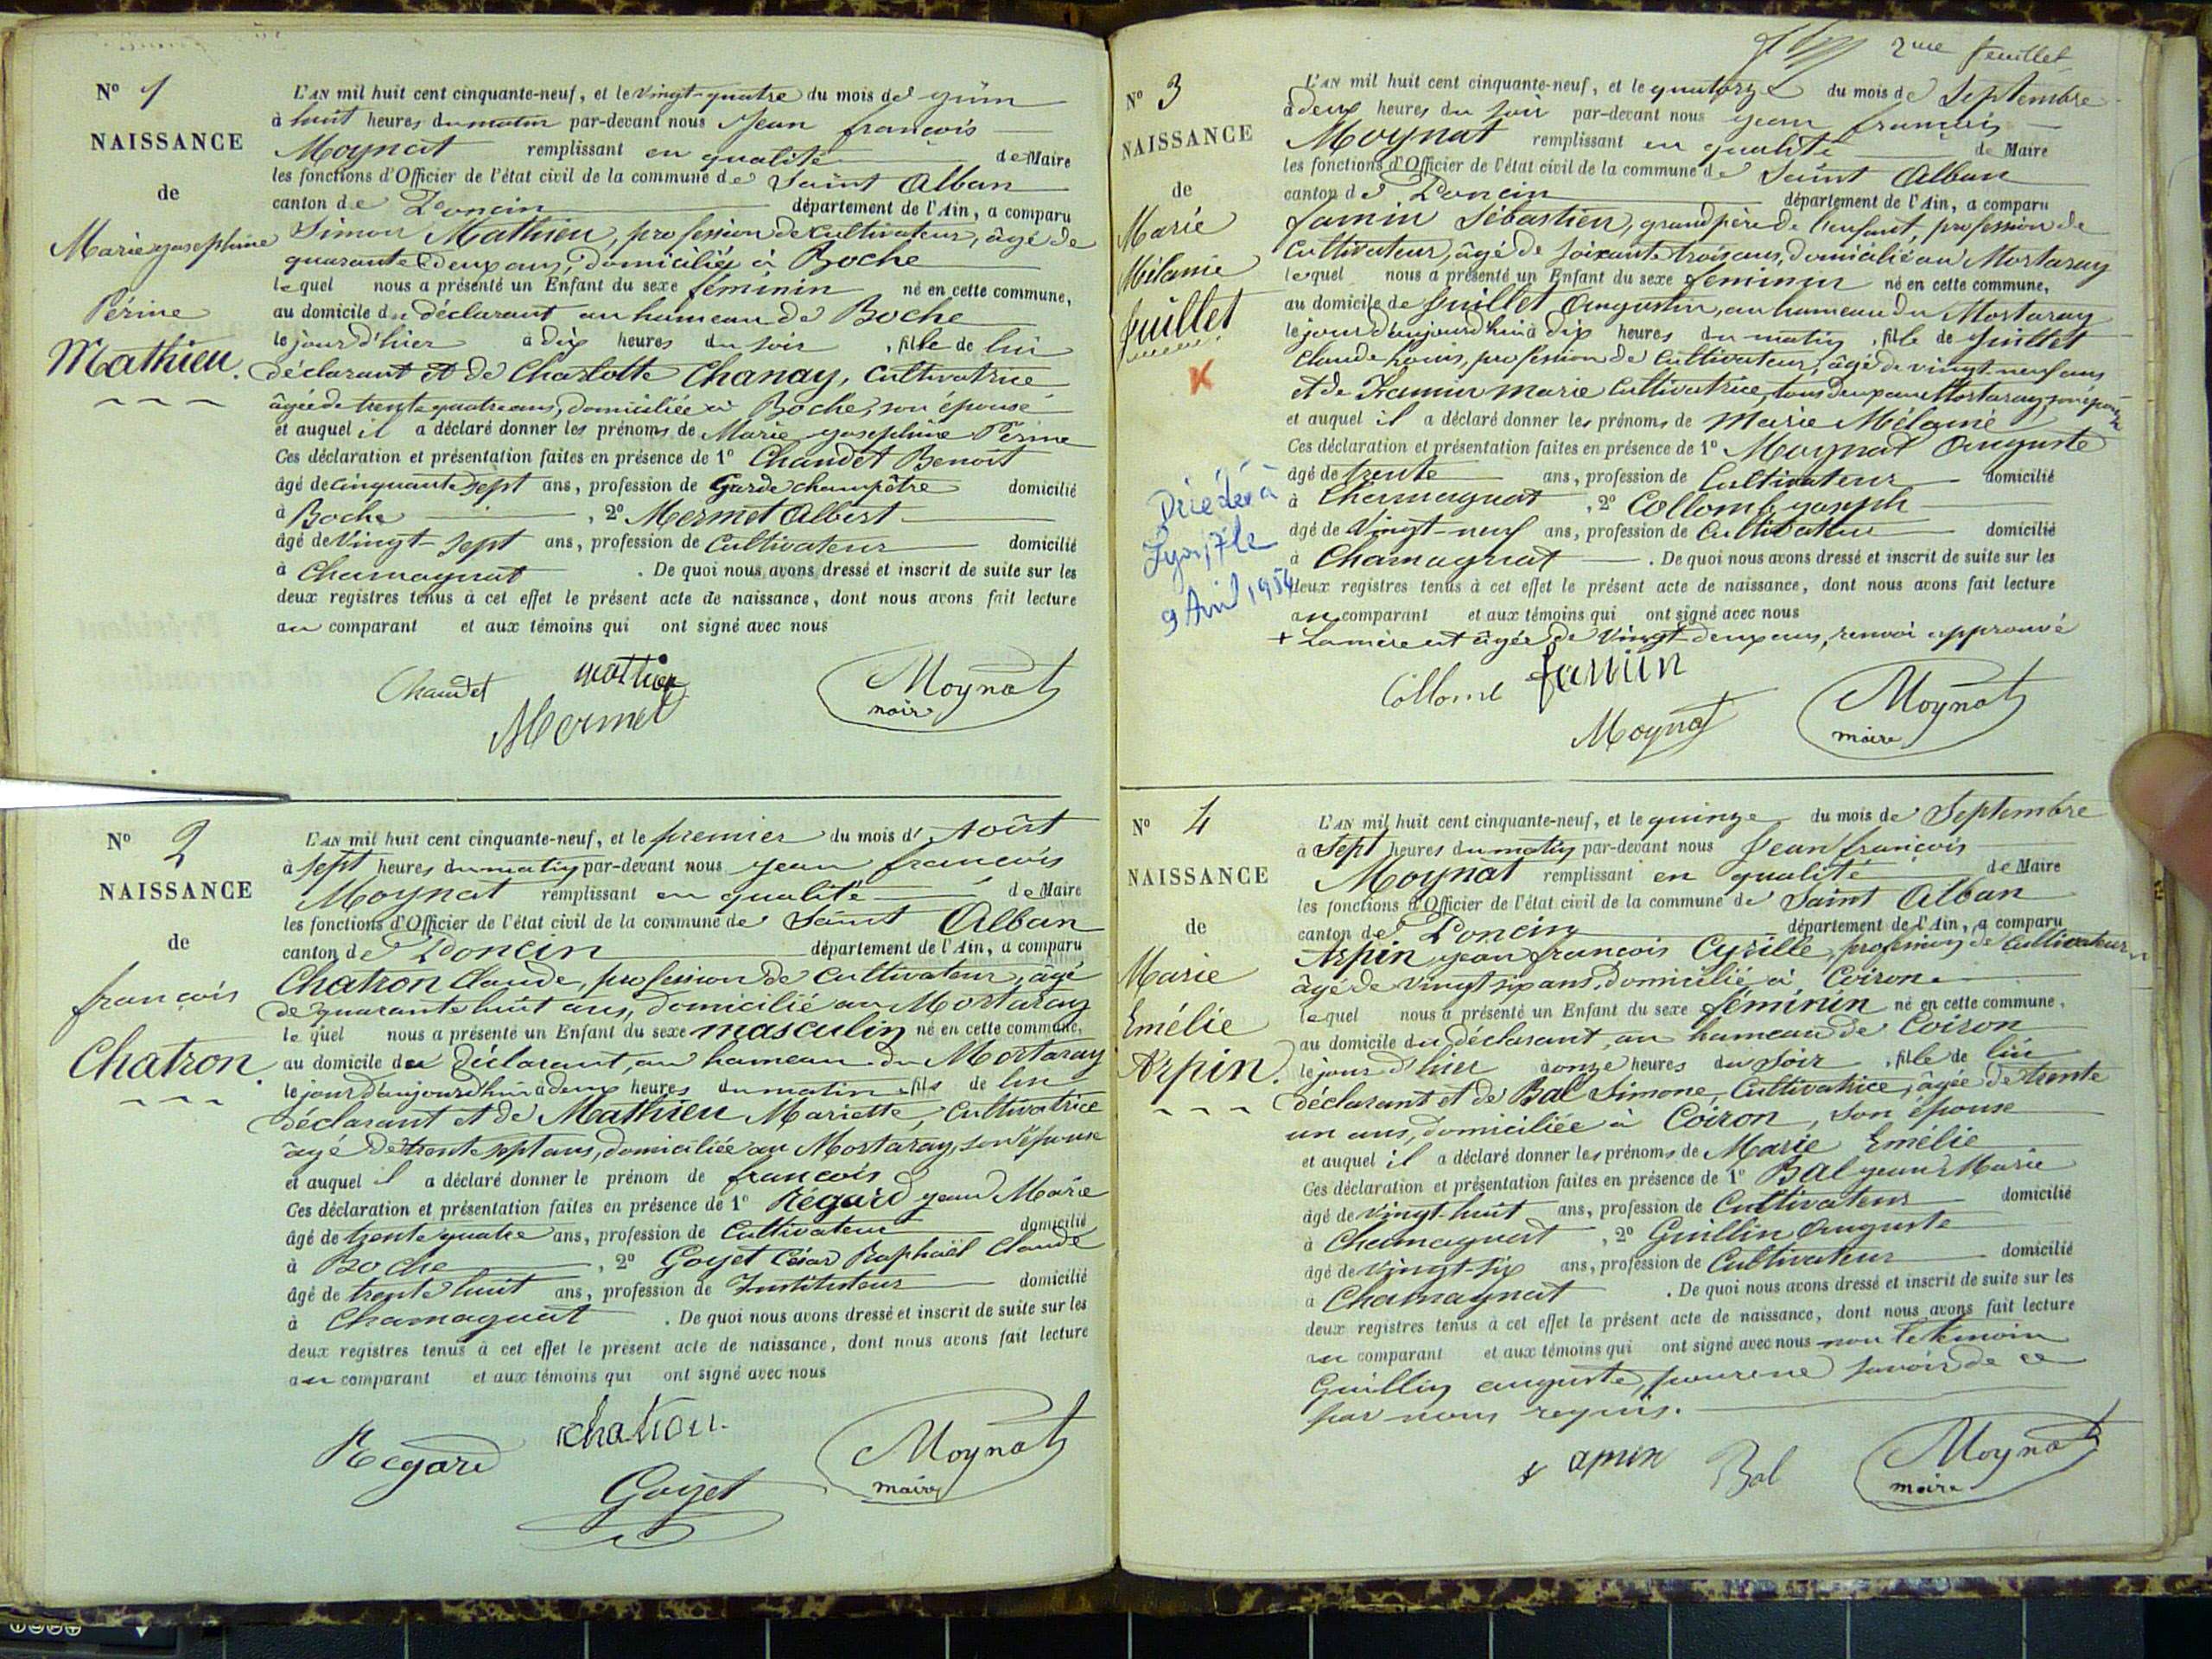 N° 1
NAISSANCE
de
Marie yosephine
Périne
Mathieu.
L'AN mil huit cent cinquante-neuf, et le vingt-quatre du mois de yuin
à huit heures du matin par-devant nous Jean françois
Moynat remplissant en qualité de Maire
les fonctions d'Officier de l'état civil de la commune de Saint Alban
canton de Poncin département de l'Ain, a comparu
Simon Mathieu, profession de cultivateur, âgé de
quarante deux ans, domicilié à Boche
lequel nous a présenté un Enfant du sexe féminin né en cette commune,
au domicile du déclarant au hameau de Boche
le jour d'hier à dix heures du soir, fille de lui
déclarant et de Charlotte Chanay, Cultivatrice
âgée de trente quatre ans, domiciliée à Boche, son épouse
et auquel il a déclaré donner les prénoms de Marie yosephine Périne
Ces déclaration et présentation faites en présence de 1° Chaudet Benoît
âgé de cinquante sept ans, profession de Garde champêtre domicilié
à Boche, 2° Mermet Albert
âgé de vingt-sept ans, profession de Cultivateur domicilié
à Chamagnat. De quoi nous avons dressé et inscrit de suite sur les
deux registres tenus à cet effet le présent acte de naissance, dont nous avons fait lecture
au comparant et aux témoins qui ont signé avec nous
Chaudet Mermet Moynat
maire
N° 2
NAISSANCE
de
françois
Chatron.
L'AN mil huit cent cinquante-neuf, et le premier du mois d'Août
à sept heures du matin par-devant nous yean françois
Moynat remplissant en qualité de Maire
les fonctions d'Officier de l'état civil de la commune de Saint Alban
canton de Poncin département de l'Ain, a comparu
Chatron Claude, profession de cultivateur, âgé
de quarante huit ans, domicilié au Mortaray
lequel nous a présenté un Enfant du sexe masculin né en cette commune,
au domicile du Déclarant, au hameau du Mortaray
le jour d'aujourd'hui à deux heures du matin, fils de lui
Déclarant et de Mathieu Mariette, Cultivatrice
âgé de trente sept ans, domiciliée au Mortaray, son épouse
et auquel il a déclaré donner le prénom de françois
Ces déclaration et présentation faites en présence de 1° Régard yean Marie
âgé de trente quatre ans, profession de Cultivateur domicilié
à Boche, 2° Goyet César Raphaël Claude
âgé de trente huit ans, profession de Instituteur domicilié
à Chamagnat. De quoi nous avons dressé et inscrit de suite sur les
deux registres tenus à cet effet le présent acte de naissance, dont nous avons fait lecture
au comparant et aux témoins qui ont signé avec nous
Regard chatron Goyet Moynat
maire
2me feuillet
N° 3
NAISSANCE
de
Marie
Mélanie
Juillet
L'AN mil huit cent cinquante-neuf, et le quatorze du mois de Septembre
à deux heures du soir par-devant nous yean françois
Moynat remplissant en qualité de Maire
les fonctions d'Officier de l'état civil de la commune de Saint Alban
canton de Poncin département de l'Ain, a comparu
Jamin Sébastien, grand père de l'enfant, profession de
Cultivateur, âgé de soixante trois ans, domicilié au Mortaray
lequel nous a présenté un Enfant du sexe féminin né en cette commune,
au domicile de Juillet Augustin, au hameau du Mortaray
le jour d'aujourd'hui à dix heures du matin, fille de Juillet
Claude Louis, profession de Cultivateur, âgé de vingt neuf ans
et de Jamin Marie Cultivatrice, tous deux au Mortaray, son épouse
et auquel il a déclaré donner les prénoms de Marie Mélanie
Ces déclaration et présentation faites en présence de 1° Moynat Auguste
âgé de trente ans, profession de Cultivateur domicilié
à Chamagnat, 2° Collomb yoseph
âgé de Vingt-neuf ans, profession de Cultivateur domicilié
à Chamagnat. De quoi nous avons dressé et inscrit de suite sur les
deux registres tenus à cet effet le présent acte de naissance, dont nous avons fait lecture
au comparant et aux témoins qui ont signé avec nous
+ La mère est âgée de vingt-deux ans, renvoi approuvé
Décédée à
Lyon, 7e le
9 Avril 1954
Collomb Jamin Moynat Moynat
maire
N° 4
NAISSANCE
de
Marie
Emélie
Arpin.
L'AN mil huit cent cinquante-neuf, et le quinze du mois de Septembre
à Sept heures du matin par-devant nous Jean françois
Moynat remplissant en qualité de Maire
les fonctions d'Officier de l'état civil de la commune de Saint Alban
canton de Poncin département de l'Ain, a comparu
Arpin yean françois Cyrille, profession de Cultivateur
âgé de vingt six ans, domicilié à Coiron
lequel nous a présenté un Enfant du sexe féminin né en cette commune,
au domicile du déclarant, au hameau de Coiron
le jour d'hier à onze heures du Soir, fille de lui
déclarant et de Bal Simone, Cultivatrice, âgée de trente
un ans, domiciliée à Coiron, son épouse
et auquel il a déclaré donner les prénoms de Marie Emélie
Ces déclaration et présentation faites en présence de 1° Bal yean Marie
âgé de vingt-huit ans, profession de Cultivateur domicilié
à Chamagnat, 2° Guillin Auguste
âgé de vingt-six ans, profession de Cultivateur domicilié
à Chamagnat. De quoi nous avons dressé et inscrit de suite sur les
deux registres tenus à cet effet le présent acte de naissance, dont nous avons fait lecture
au comparant et aux témoins qui ont signé avec nous non le témoin
Guillin auguste, pour ne savoir de ce
par nous requis.
Bal Moynat
maire